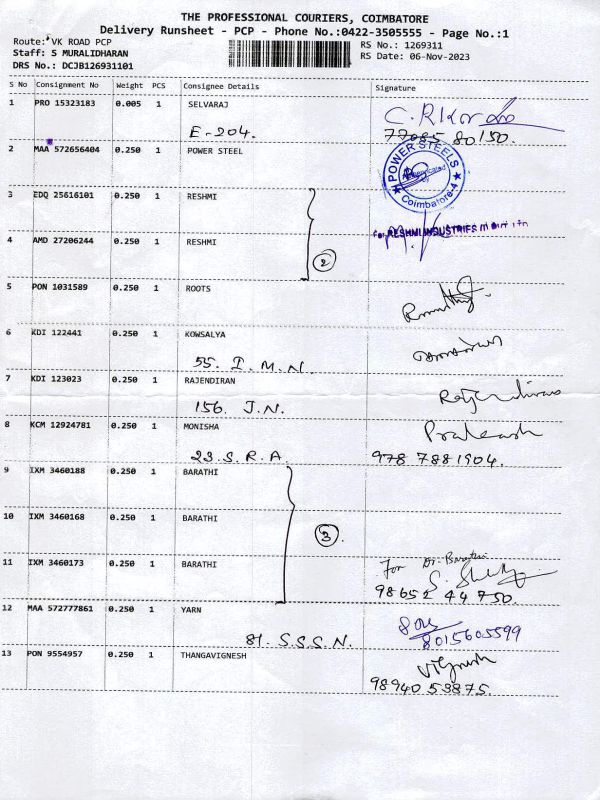 THE PROFESSIONAL COURIERS, COIMBATORE
Delivery Runsheet - PCP - Phone No.:0422-3505555 - Page No.:1
Route: VK ROAD PCP
Staff: S MURALIDHARAN
DRS No.: DCJB126931101
RS No.: 1269311
RS Date: 06-Nov-2023
S No Consignment No Weight PCS Consignee Details Signature
1 PRO 15323183 0.005 1 SELVARAJ
E-204. 77085 80150.
2 MAA 572656404 0.250 1 POWER STEEL
POWER STEELS
Coimbatore-4
3 EDQ 25616101 0.250 1 RESHMI
4 AMD 27206244 0.250 1 RESHMI
For RESHMI INDUSTRIES
2
5 PON 1031589 0.250 1 ROOTS
6 KDI 122441 0.250 1 KOWSALYA
55. I.M.N.
7 KDI 123023 0.250 1 RAJENDIRAN
156. J.N.
Rajendiran
8 KCM 12924781 0.250 1 MONISHA
Prakash
23.S.R.A. 978 7881904.
9 IXM 3460188 0.250 1 BARATHI
10 IXM 3460168 0.250 1 BARATHI
3
11 IXM 3460173 0.250 1 BARATHI
for Dr. Barathi
98652 44750.
12 MAA 572777861 0.250 1 YARN
81. S.S.S.N. 8015605599
13 PON 9554957 0.250 1 THANGAVIGNESH
Vignesh
98940 53875.